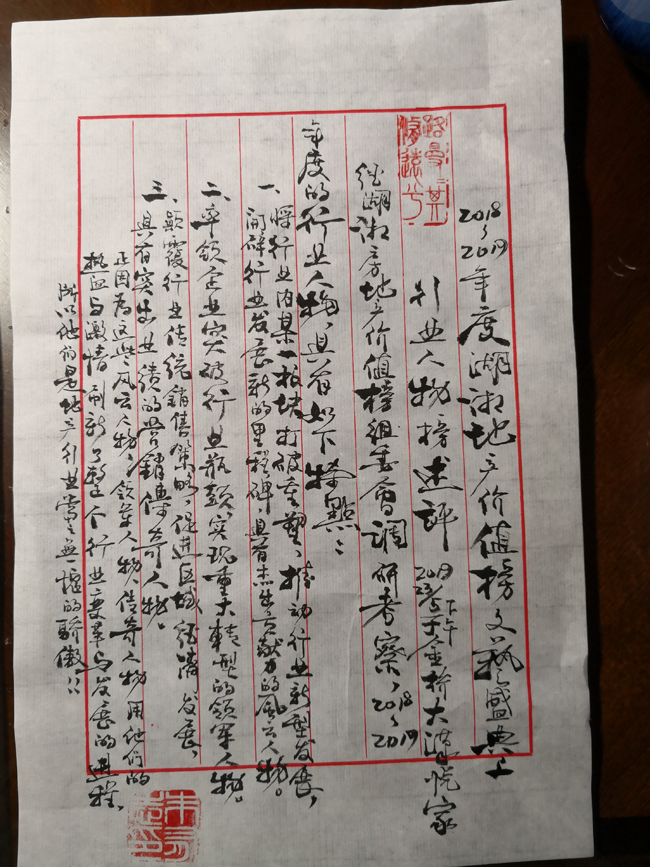 2018~2019年度湖湘地产价值榜文艺盛典上
行业人物榜述评
2019 下午 于金桥大汉悦家
经湖湘房地产价值榜组委会调研考察、2018~2019
年度的行业人物，具有如下特點：
一、將行业内某一板块打破重塑、推动行业新型发展，
開辟行业发展新的里程碑，具有杰出贡献力的风云人物。
二、率领企业突破行业瓶颈实现重大转型的领军人物。
三、颠覆行业传统銷售策略，促进区域经济发展、
具有突出业绩的营銷传奇人物。
正因為这些风云人物、领军人物、传奇人物用他们的
热血与激情刷新了整个行业变革与发展的进程、
所以他们是地产行业當之無愧的骄傲!!